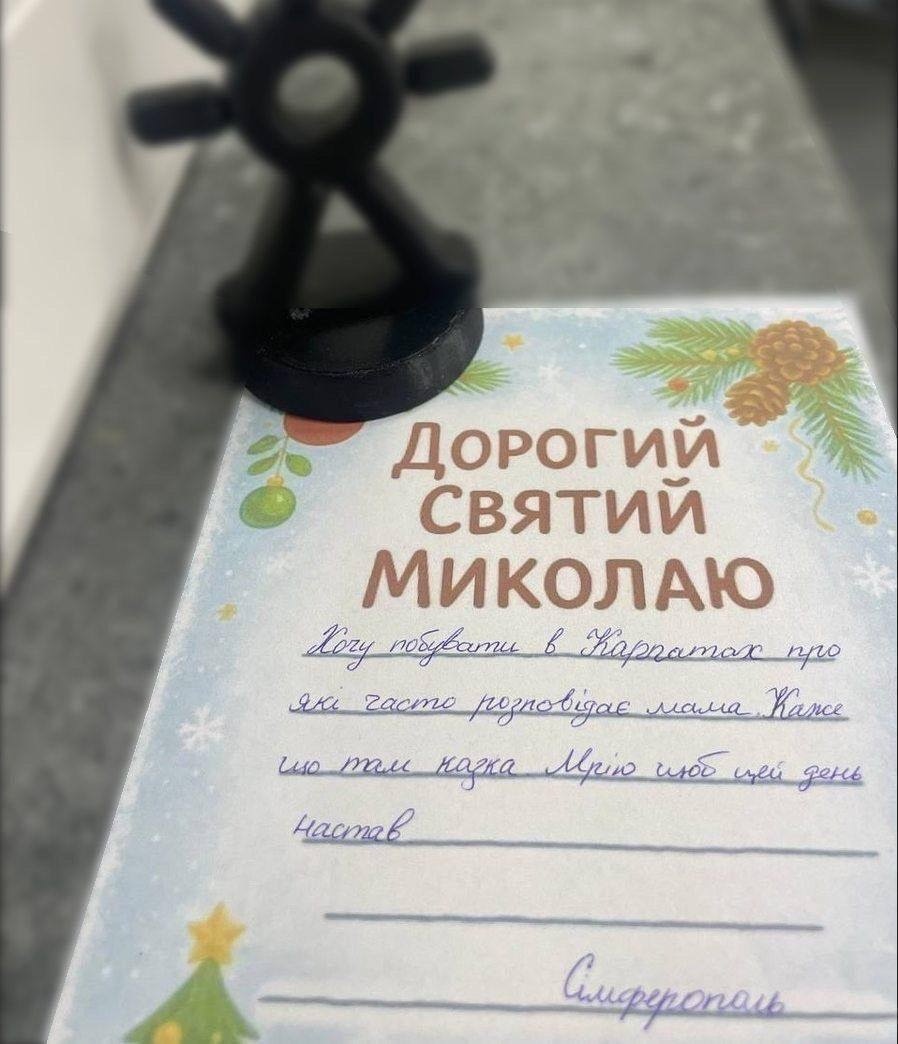 ДОРОГИЙ
СВЯТИЙ
МИКОЛАЮ
Хочу побувати в Карпатах про
які часто розповідає мама. Каже
що там казка Мрію щоб цей день
настав
Сімферополь